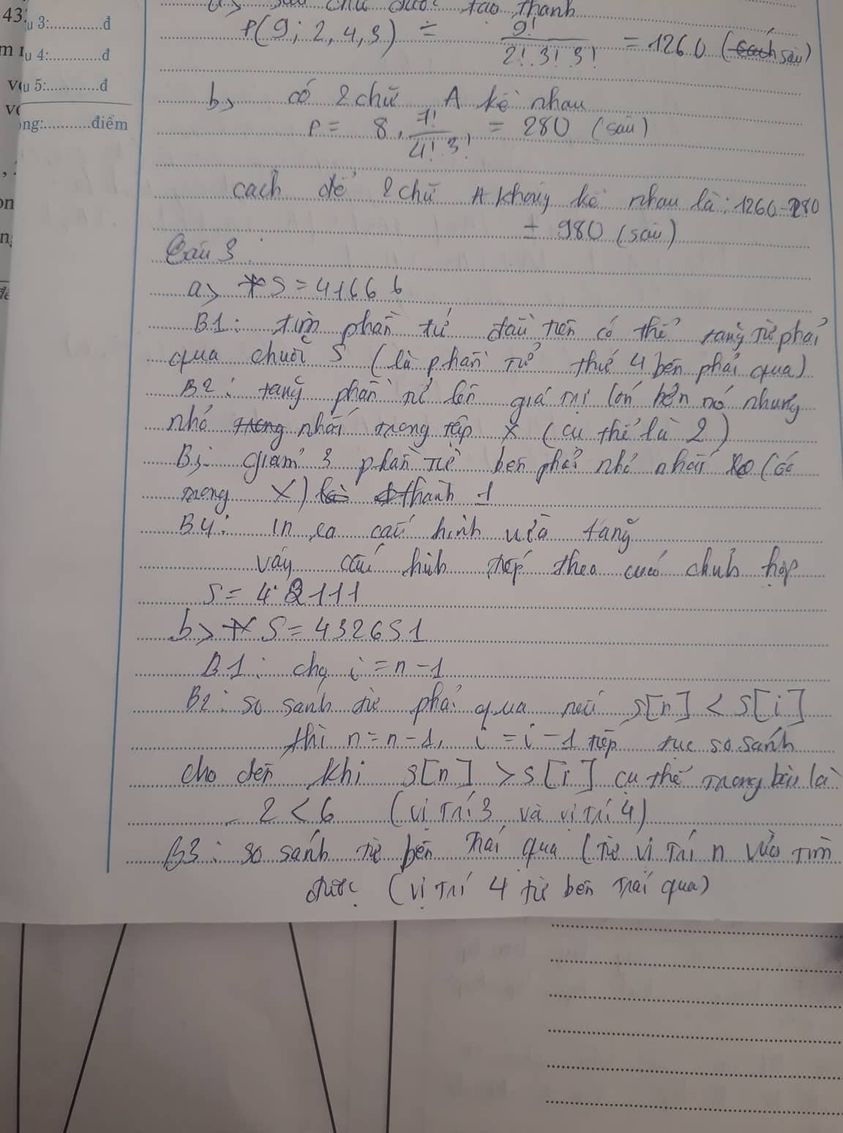 43
u 3:............đ
u 4:............đ
u 5:............đ
ng:...........điểm
sau chữ được tạo thành
P(9; 2, 4, 3) = 9! / 2! 3! 3! = 1260 (sâu)
b, có 2 chữ A kề nhau
P = 8. 7! / 4! 3! = 280 (sâu)
cách để 2 chữ A không kề nhau là: 1260-280
= 980 (sâu)
Câu 3
a> * S = 41666
B1: tìm phần tử đầu tiên có thể tăng từ phải
qua chuỗi S (là phần tử thứ 4 bên phải qua)
B2: tăng phần tử lên giá trị lớn hơn nó nhưng
nhỏ nhất trong tập X (cụ thể là 2)
B3: giảm 3 phần tử bên phải nhỏ nhất (có
trong X) thành 1
B4: in ra cấu hình vừa tăng
vậy cấu hình tiếp theo của chỉnh hợp
S = 42111
b> * S = 432651
B1: cho i = n-1
B2: so sánh từ phải qua nếu S[n] < S[i]
thì n = n-1, i = i-1 tiếp tục so sánh
cho đến khi S[n] > S[i] cụ thể trong bài là
2 < 6 (vị trí 3 và vị trí 4)
B3: so sánh từ bên trái qua (từ vị trí n vừa tìm
được (vị trí 4 từ bên trái qua)